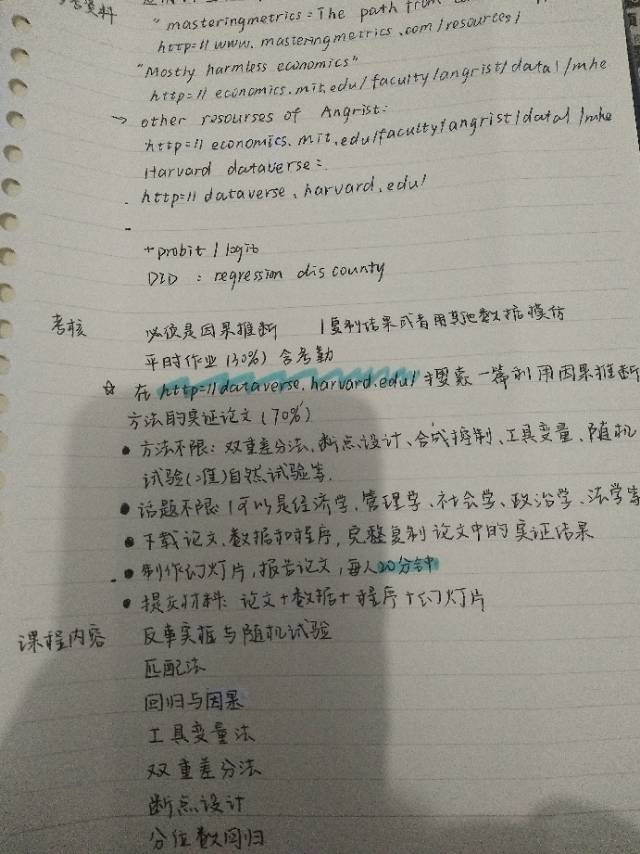 参考资料
"masteringmetrics: The path from
http://www.masteringmetrics.com/resources/
"Mostly harmless economics"
http://economics.mit.edu/faculty/angrist/data1/mhe
→ other resourses of Angrist:
http://economics.mit.edu/faculty/angrist/data1/mhe
Harvard dataverse:
http://dataverse.harvard.edu/
+probit / logit
DID : regression dis county
考核 必须是因果推断 (复制结果或者用其他数据模仿
平时作业(30%)含考勤
☆ 在http://dataverse.harvard.edu/搜索一篇利用因果推断
方法的实证论文(70%)
• 方法不限: 双重差分法、断点设计、合成控制、工具变量、随机
试验(二值)自然试验等.
• 话题不限: 可以是经济学、管理学、社会学、政治学、法学等
• 下载论文、数据和程序, 完整复制论文中的实证结果
• 制作幻灯片, 报告论文, 每人20分钟
• 提交材料: 论文+数据+程序+幻灯片
课程内容 反事实框与随机试验
匹配法
回归与因果
工具变量法
双重差分法
断点设计
分位数回归